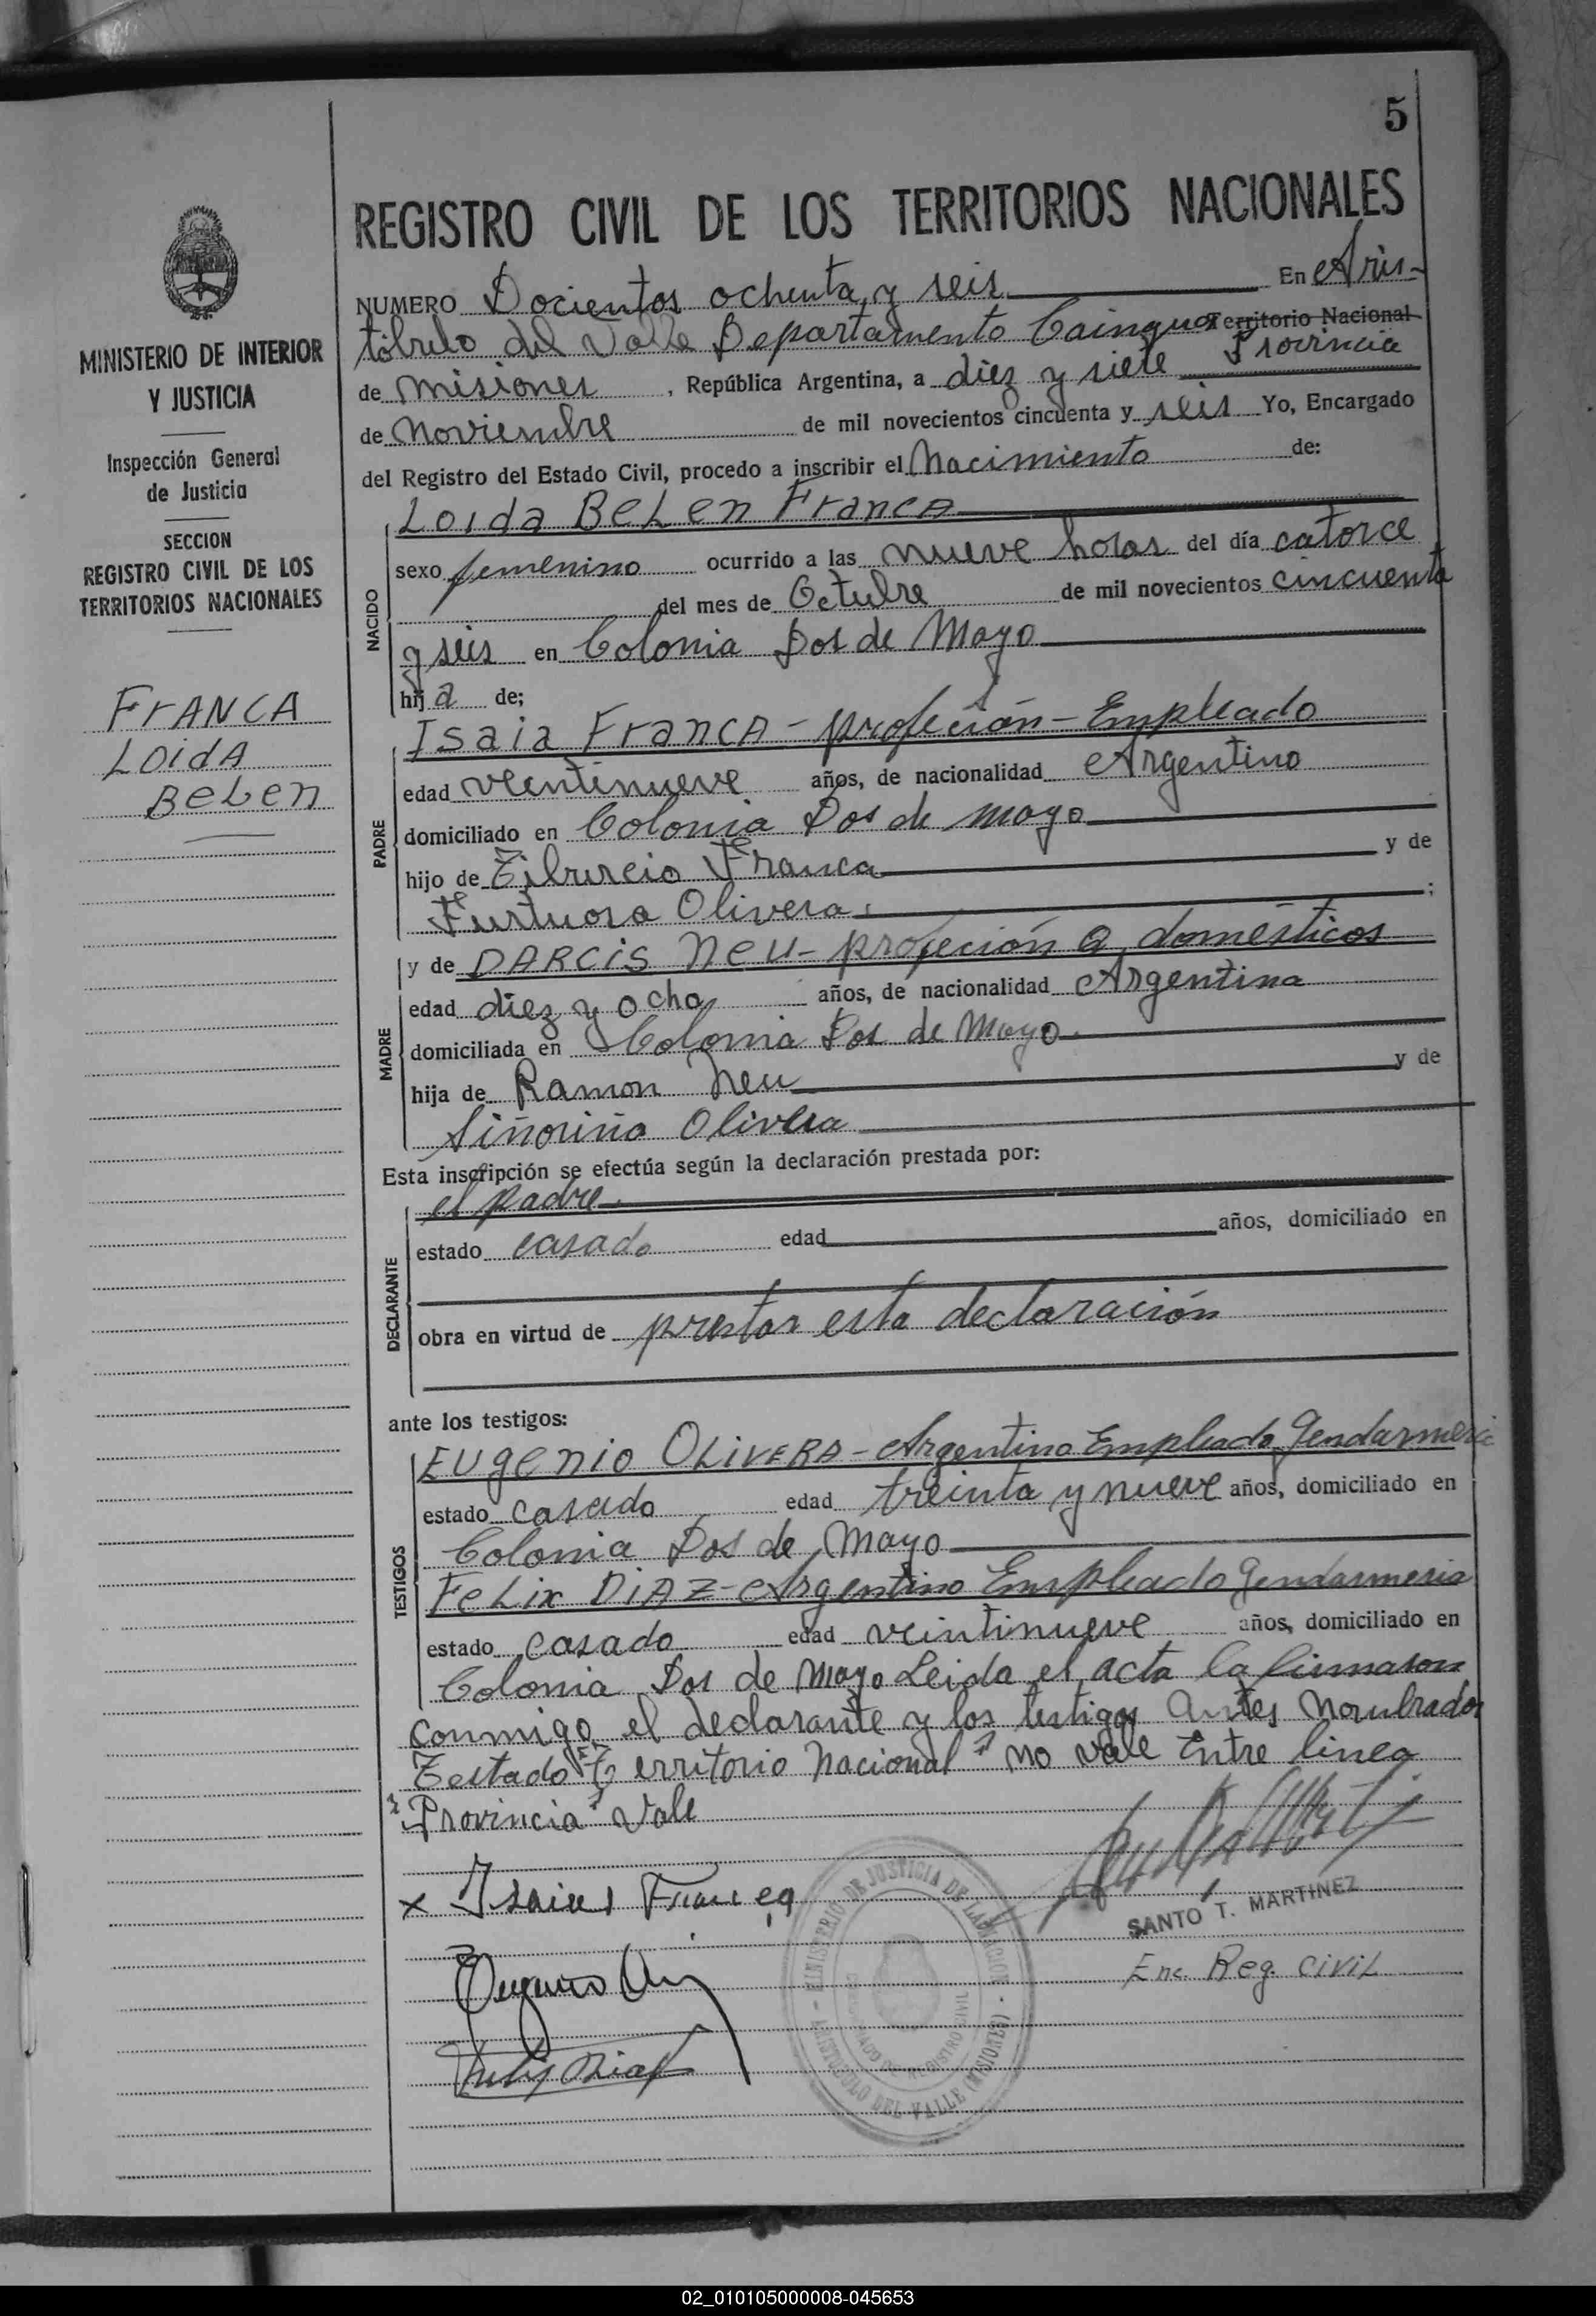 5
REGISTRO CIVIL DE LOS TERRITORIOS NACIONALES
MINISTERIO DE INTERIOR
Y JUSTICIA
Inspección General
de Justicia
SECCION
REGISTRO CIVIL DE LOS
TERRITORIOS NACIONALES
FrANCA
LOidA
BeLen
NUMERO Docientos ochenta y seis En Aris-
tóbulo del Valle Departamento Cainguas Territorio Nacional
Provincia
de Misiones, República Argentina, a diez y siete
de Noviembre de mil novecientos cincuenta y seis Yo, Encargado
del Registro del Estado Civil, procedo a inscribir el Nacimiento de:
NACIDO
Loida BeLen Franca
sexo femenino ocurrido a las nueve horas del día catorce
del mes de Octubre de mil novecientos cincuenta
y seis en Colonia Dos de Mayo
hija de;
PADRE
Isaia Franca - profeción - Empleado
edad veintinueve años, de nacionalidad Argentino
domiciliado en Colonia Dos de Mayo
hijo de Tiburcio Franca y de
Furtuosa Olivera ;
MADRE
y de DARCIS Neu - profeción Q. domésticos
edad diez y ocho años, de nacionalidad Argentina
domiciliada en Colonia Dos de Mayo
hija de Ramon Neu y de
Siñoriña Olivera
Esta inscripción se efectúa según la declaración prestada por:
DECLARANTE
el padre
estado casado edad años, domiciliado en
obra en virtud de prestar esta declaración
ante los testigos:
TESTIGOS
EUgenio OLiVERA - Argentino Empleado Gendarmeria
estado casado edad treinta y nueve años, domiciliado en
Colonia Dos de Mayo
FeLix DiAZ - Argentino Empleado Gendarmeria
estado casado edad veintinueve años, domiciliado en
Colonia Dos de Mayo Leida el acta la firmaron
conmigo el declarante y los testigos Antes Nombrados
Testado "Territorio Nacional" no vale Entre linea
"Provincia" Vale
x Isaias Franca
SANTO T. MARTINEZ
Enc. Reg. CiviL
Felix Diaz
MINISTERIO DE JUSTICIA DE LA NACION
REGISTRO CIVIL
ARISTOBULO DEL VALLE (MISIONES)
02_010105000008-045653